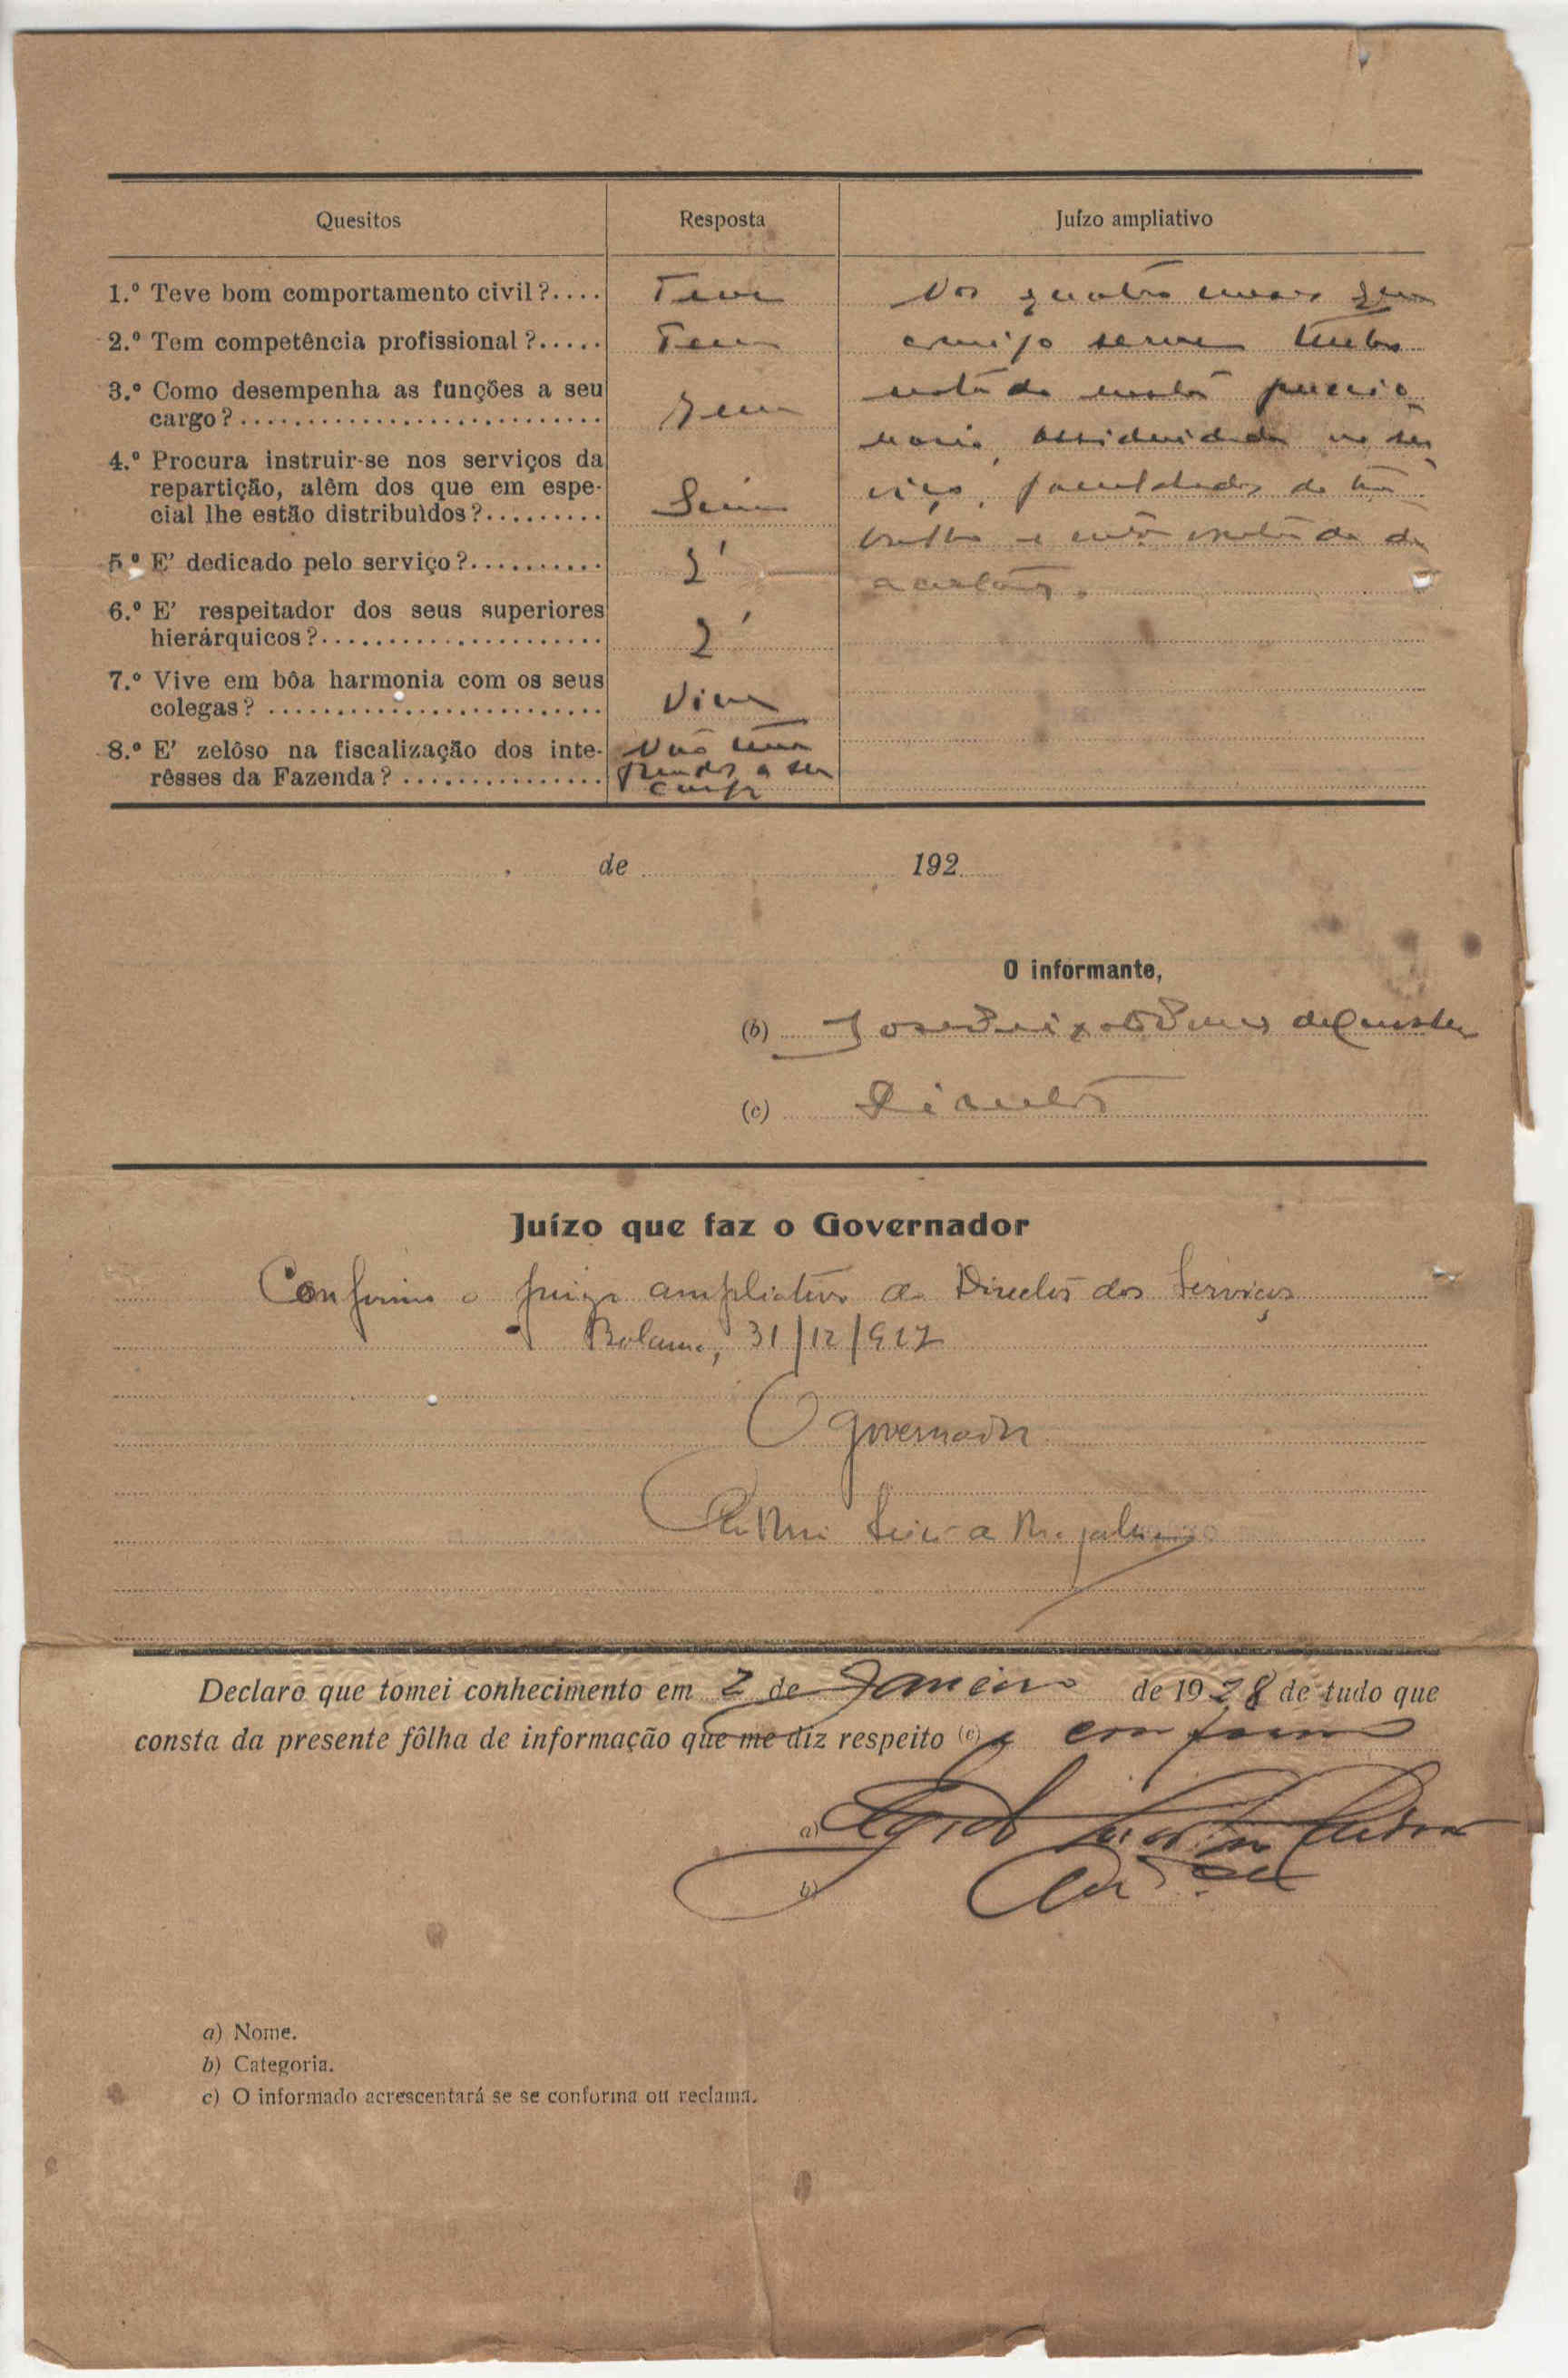 Quesitos
Resposta
Juízo ampliativo
1.º Teve bom comportamento civil?....
Teve
Nos quatro meses que
2.º Tem competência profissional?.....
Tem
comigo serve tenho
3.º Como desempenha as funções a seu
cargo?...........................
Bem
notado neste funcio
nario, assiduidade no ser
4.º Procura instruir-se nos serviços da
repartição, alêm dos que em espe-
cial lhe estão distribuìdos?.........
Sim
viço, faculdades de tra
balho e boa vontade de
5.º E' dedicado pelo serviço?..........
É
acertar.
6.º E' respeitador dos seus superiores
hierárquicos?.....................
É
7.º Vive em bôa harmonia com os seus
colegas? .........................
Vive
8.º E' zelôso na fiscalização dos inte-
rêsses da Fazenda? ...............
Não tem
fundos a seu
cargo
de 192
O informante,
(b) José Peixoto de
(c) Director
Juízo que faz o Governador
Conforme o juizo ampliativo do Director dos Serviços
Bolama, 31/12/927
O Governador
Leite de Magalhães
Declaro que tomei conhecimento em 2 de Janeiro de 1928 de tudo que
consta da presente fôlha de informação que me diz respeito (c) e conformo
a)
b)
a) Nome.
b) Categoria.
c) O informado acrescentará se se conforma ou reclama.